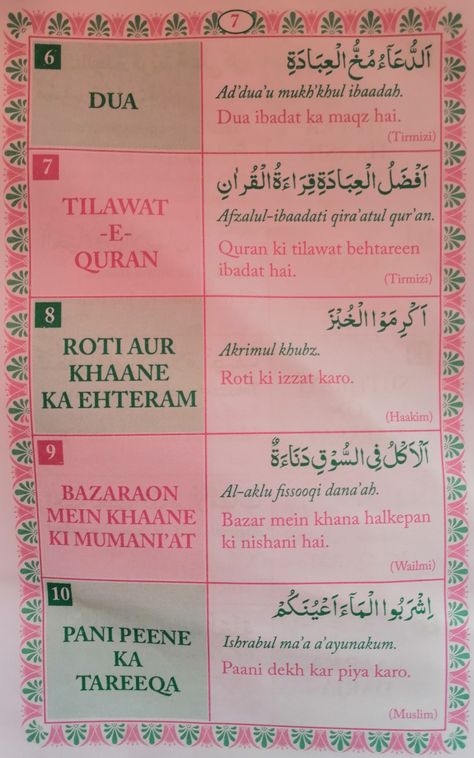 7
6
DUA
اَلدُّعَآءُ مُخُّ الْعِبَادَةِ
Ad'dua'u mukh'khul ibaadah.
Dua ibadat ka maqz hai.
(Tirmizi)
7
TILAWAT
-E-
QURAN
اَفْضَلُ الْعِبَادَةِ قِرَاءَةُ الْقُرْاٰنِ
Afzalul-ibaadati qira'atul qur'an.
Quran ki tilawat behtareen
ibadat hai.
(Tirmizi)
8
ROTI AUR
KHAANE
KA EHTERAM
اَكْرِمُوْا الْخُبْزَ
Akrimul khubz.
Roti ki izzat karo.
(Haakim)
9
BAZARAON
MEIN KHAANE
KI MUMANI'AT
اَلْاَكْلُ فِى السُّوْقِ دَنَاءَةٌ
Al-aklu fissooqi dana'ah.
Bazar mein khana halkepan
ki nishani hai.
(Wailmi)
10
PANI PEENE
KA
TAREEQA
اِشْرَبُوا الْمَآءَ اَعْيُنَكُمْ
Ishrabul ma'a a'ayunakum.
Paani dekh kar piya karo.
(Muslim)